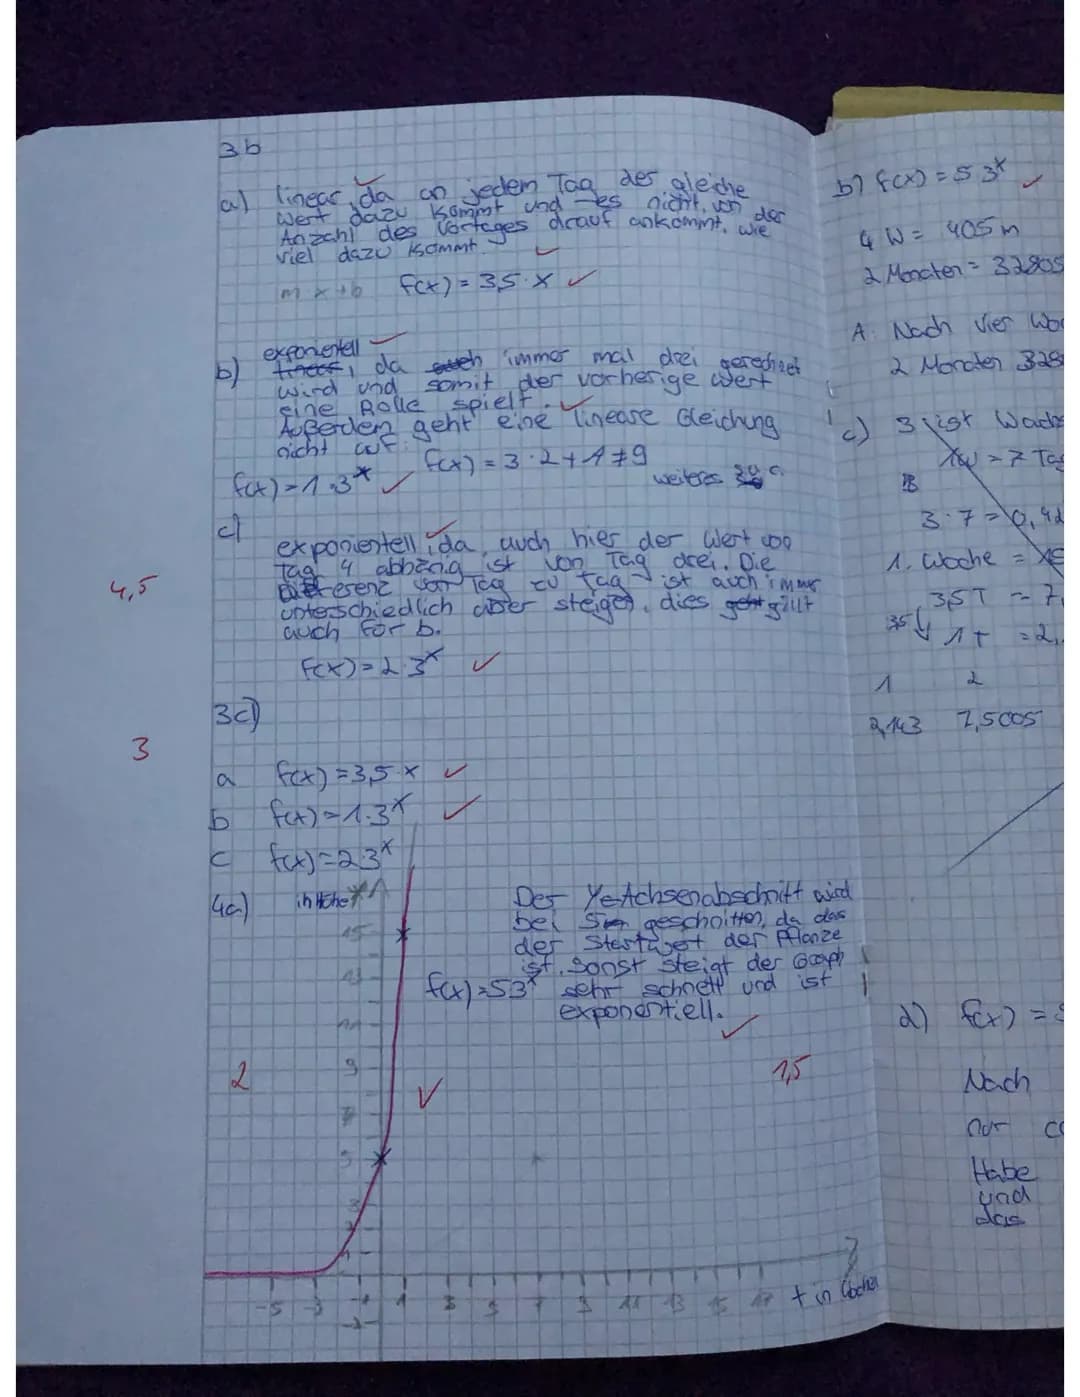 3b
a) linear, da an jedem Tag der gleiche
Wert dazu kommt und es nicht von der
Anzahl des Vortages drauf ankommt, wie
viel dazu kommt.
m x+b f(x) = 3,5·x
exponentiell
b) linear, da auch immer mal drei gerechnet
wird und somit der vorherige Wert
eine Rolle spielt.
Außerdem geht eine lineare Gleichung
nicht auf.
f(x) = 3·2+1≠9
f(x)=1·3^x
weiteres
c)
exponentiell, da auch hier der Wert von
Tag 4 abhänig ist von Tag drei. Die
Differenz von Tag zu Tag ist auch immer
unterschiedlich aber steiget, dies geht gillt
auch für b.
4,5
f(x)=2·3^x
3c)
3
a f(x)=3,5·x
b f(x)=1·3^x
c f(x)=2·3^x
4a) in Höhe
Der Y-Achsenabschnitt wird
bei 5m geschnitten, da das
der Startwert der Pflanze
ist. Sonst steigt der Graph
f(x)=5·3^x sehr schnell und ist
exponentiell.
15
13
11
9
7
5
3
2
1
2
1,5
-5 -3 -1 1 3 5 7 9 11 13 15 17 t in Wochen
-2
b) f(x) = 5·3^x
4 W = 405 m
2 Monaten = 32805
A: Nach vier Wo
2 Monaten 328
c) 3 ist Wachs
1W = 7 Tag
3·7=0,42
1. Woche =
3,5T = 7,
3,5 1T = 2,
1 2
2,143 7,5005
d) f(x) =
Nach
nur
Habe
und
das